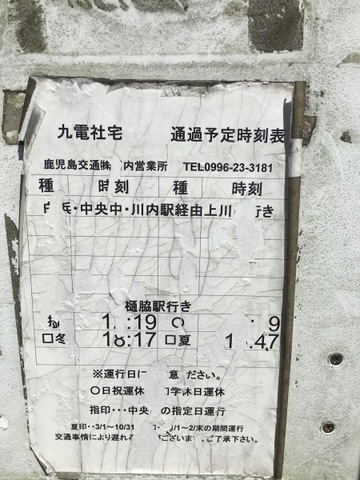 九電社宅 通過予定時刻表
鹿児島交通㈱ 内営業所 TEL0996-23-3181
種 時刻 種 時刻
・中央中・川内駅経由上川 行き
樋脇駅行き
19 9
冬 18:17 夏 47
※運行日に 意 ださい。
〇日祝運休 学休日運休
指印・・・中央 の指定日運行
夏印・・3/1~10/31 /1~2/末の期間運行
交通事情により遅れ ございま ご了承下さい。